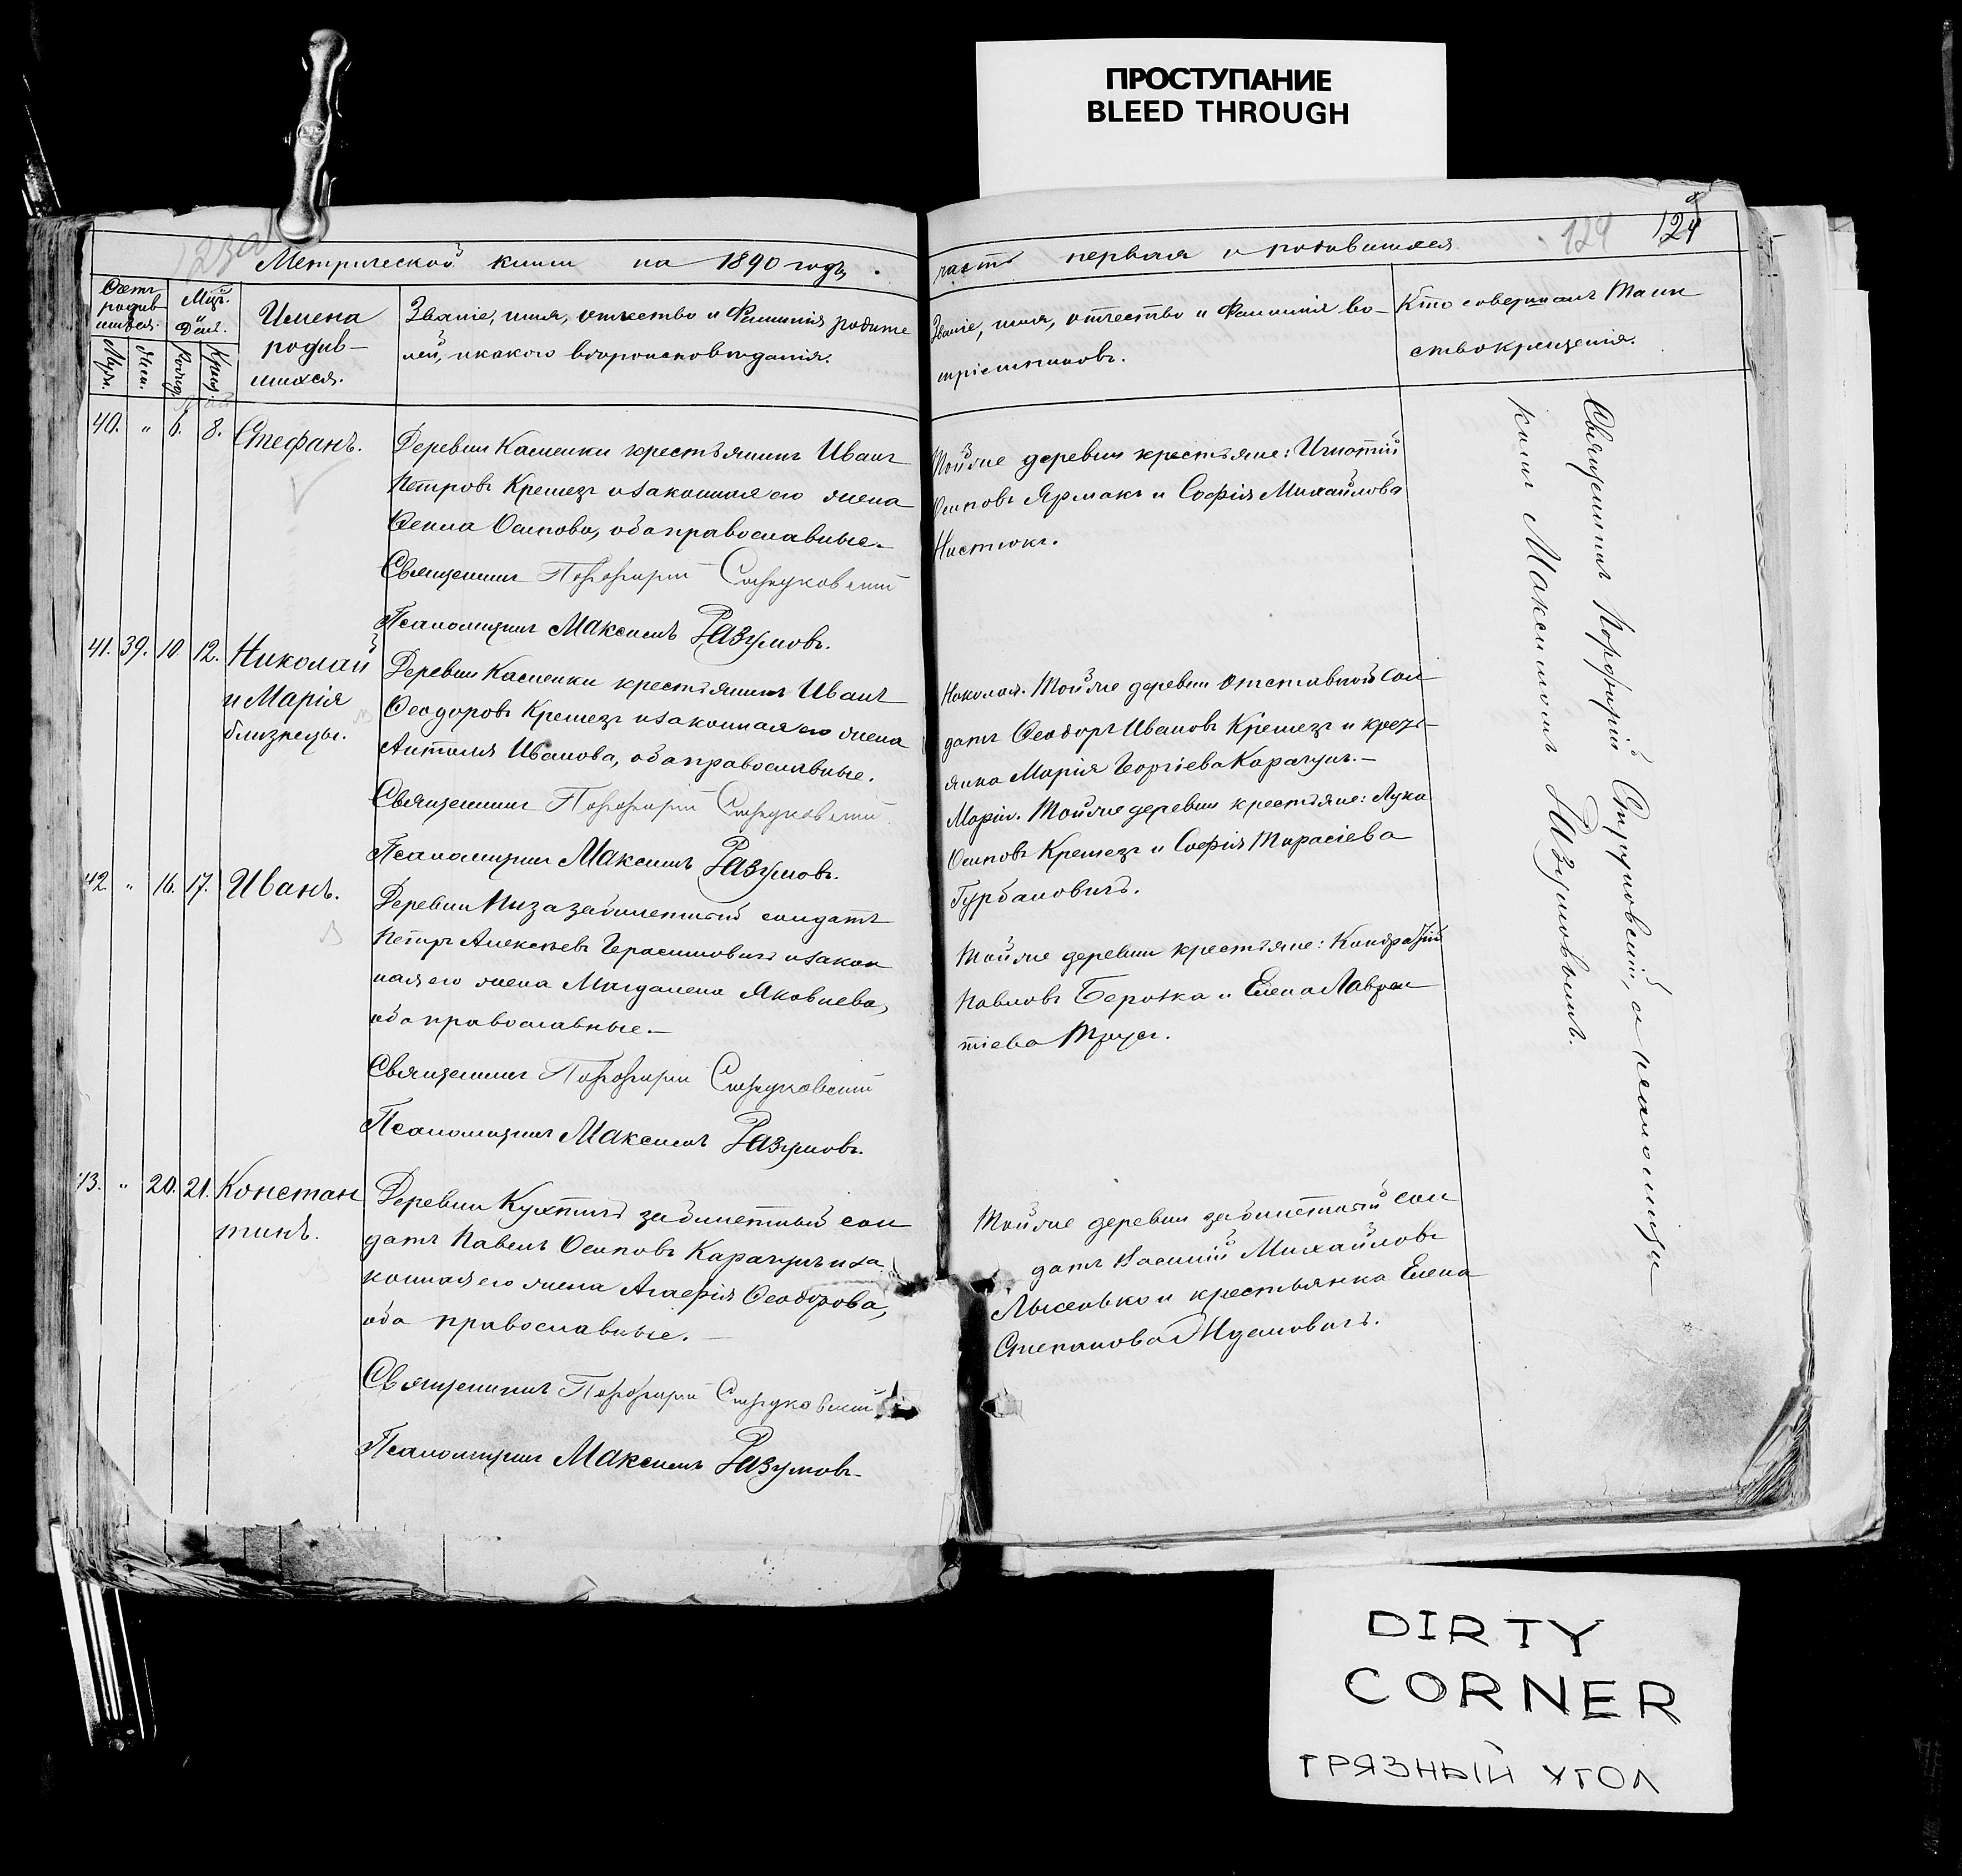 ПРОСТУПАНИЕ
BLEED THROUGH
123об
124 124
Метрической книги на 1890 годъ,
часть первая о родившихся
Счетъ родив шихся.
Муж. Жен.
Мцъ. и День.
Рожд. Крещ.
Имена
родив-
шихся.
Званіе, имя, отчество и фамилія родите
лей, и какого вѣроисповѣданія.
Званіе, имя, отчество и фамилія во-
спріемниковъ.
Кто совершалъ Таин
ство крещенія.
Май
40. " 6. 8. Стефанъ.
Деревни Каменки крестьянинъ Иванъ
Петровъ Кремезъ и законная его жена
Ѳекла Осипова, оба православные.-
Священникъ Порфирій
Псаломщикъ Максимъ Разумовъ.
Тойже деревни крестьяне: Игнатій
Осиповъ Ярмакъ и Софія Михайлова
Настюкъ.
41. 39. 10. 12. Николай
и Марія
близнецы.
Деревни Каменки крестьянинъ Иванъ
Ѳеодоровъ Кремезъ и законная его жена
Иванова, оба православные.
Священникъ Порфирій
Псаломщикъ Максимъ Разумовъ.
Николая. Тойже деревни отставной сол
датъ Ѳеодоръ Ивановъ Кремезъ и кресть-
янка Марія Георгіева Карачунъ.-
Маріи. Тойже деревни крестьяне: Лука
Осиповъ Кремезъ и Софія Тарасіева
Гурбановичъ.
42. " 16. 17. Иванъ.
Деревни Низа забилетный солдатъ
Петръ Алексѣевъ Герасимовичъ и закон
ная его жена Магдалена Яковлева,
оба православные.-
Священникъ Порфирій
Псаломщикъ Максимъ Разумовъ.
Тойже деревни крестьяне: Кондратій
Павловъ и Елена Лаврен
тіева Трусъ.
43. " 20. 21. Констан
тинъ.
Деревни Кухтичъ забилетный сол
датъ Павелъ Осиповъ Карачунъ и за
конная его жена Агафія Ѳеодорова,
оба православные.-
Священникъ Порфирій
Псаломщикъ Максимъ Разумовъ-
Тойже деревни забилетный сол
датъ Василій Михайловъ
Лысенько и крестьянка Елена
Степанова
Священникъ Порфирій съ псаломщи
комъ Максимомъ Разумовымъ.
DIRTY
CORNER
ГРЯЗНЫЙ УГОЛ